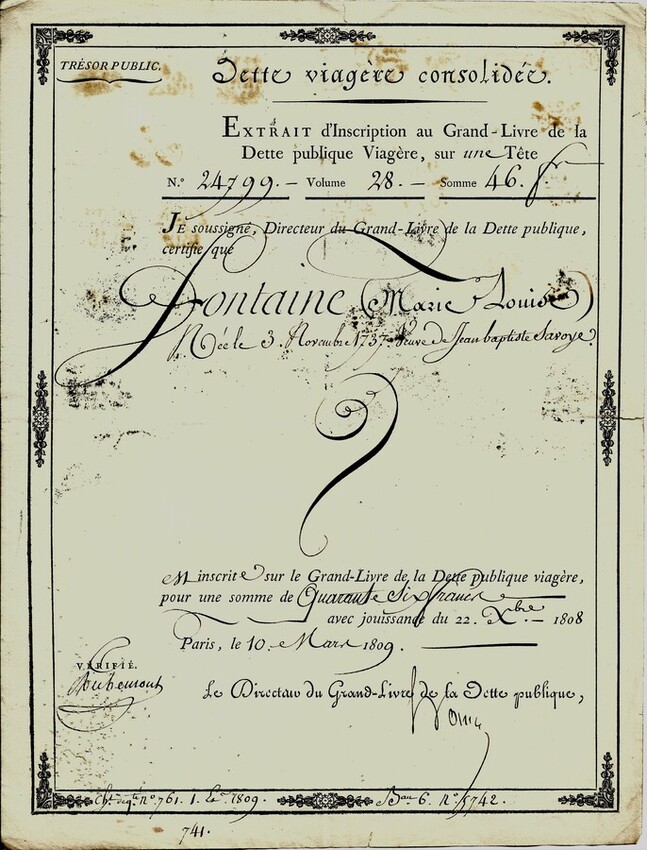 TRÉSOR PUBLIC.
Dette viagère consolidée.
EXTRAIT d'Inscription au Grand-Livre de la
Dette publique Viagère, sur une Tête
N.º 24799.- Volume 28.- Somme 46. fr
JE soussigné, Directeur du Grand-Livre de la Dette publique,
certifie que
Fontaine (Marie Louise)
Née le 3. Novembre 1737. Veuve de Jean baptiste Savoye.
est inscrite sur le Grand-Livre de la Dette publique viagère,
pour une somme de Quarante Six francs
avec jouissance du 22. Xbre.- 1808
Paris, le 10. Mars 1809.
VÉRIFIÉ.
Le Directeur du Grand-Livre de la Dette publique,
nº 761. 1. 1809. Bau 6. Nº 5742.
741.